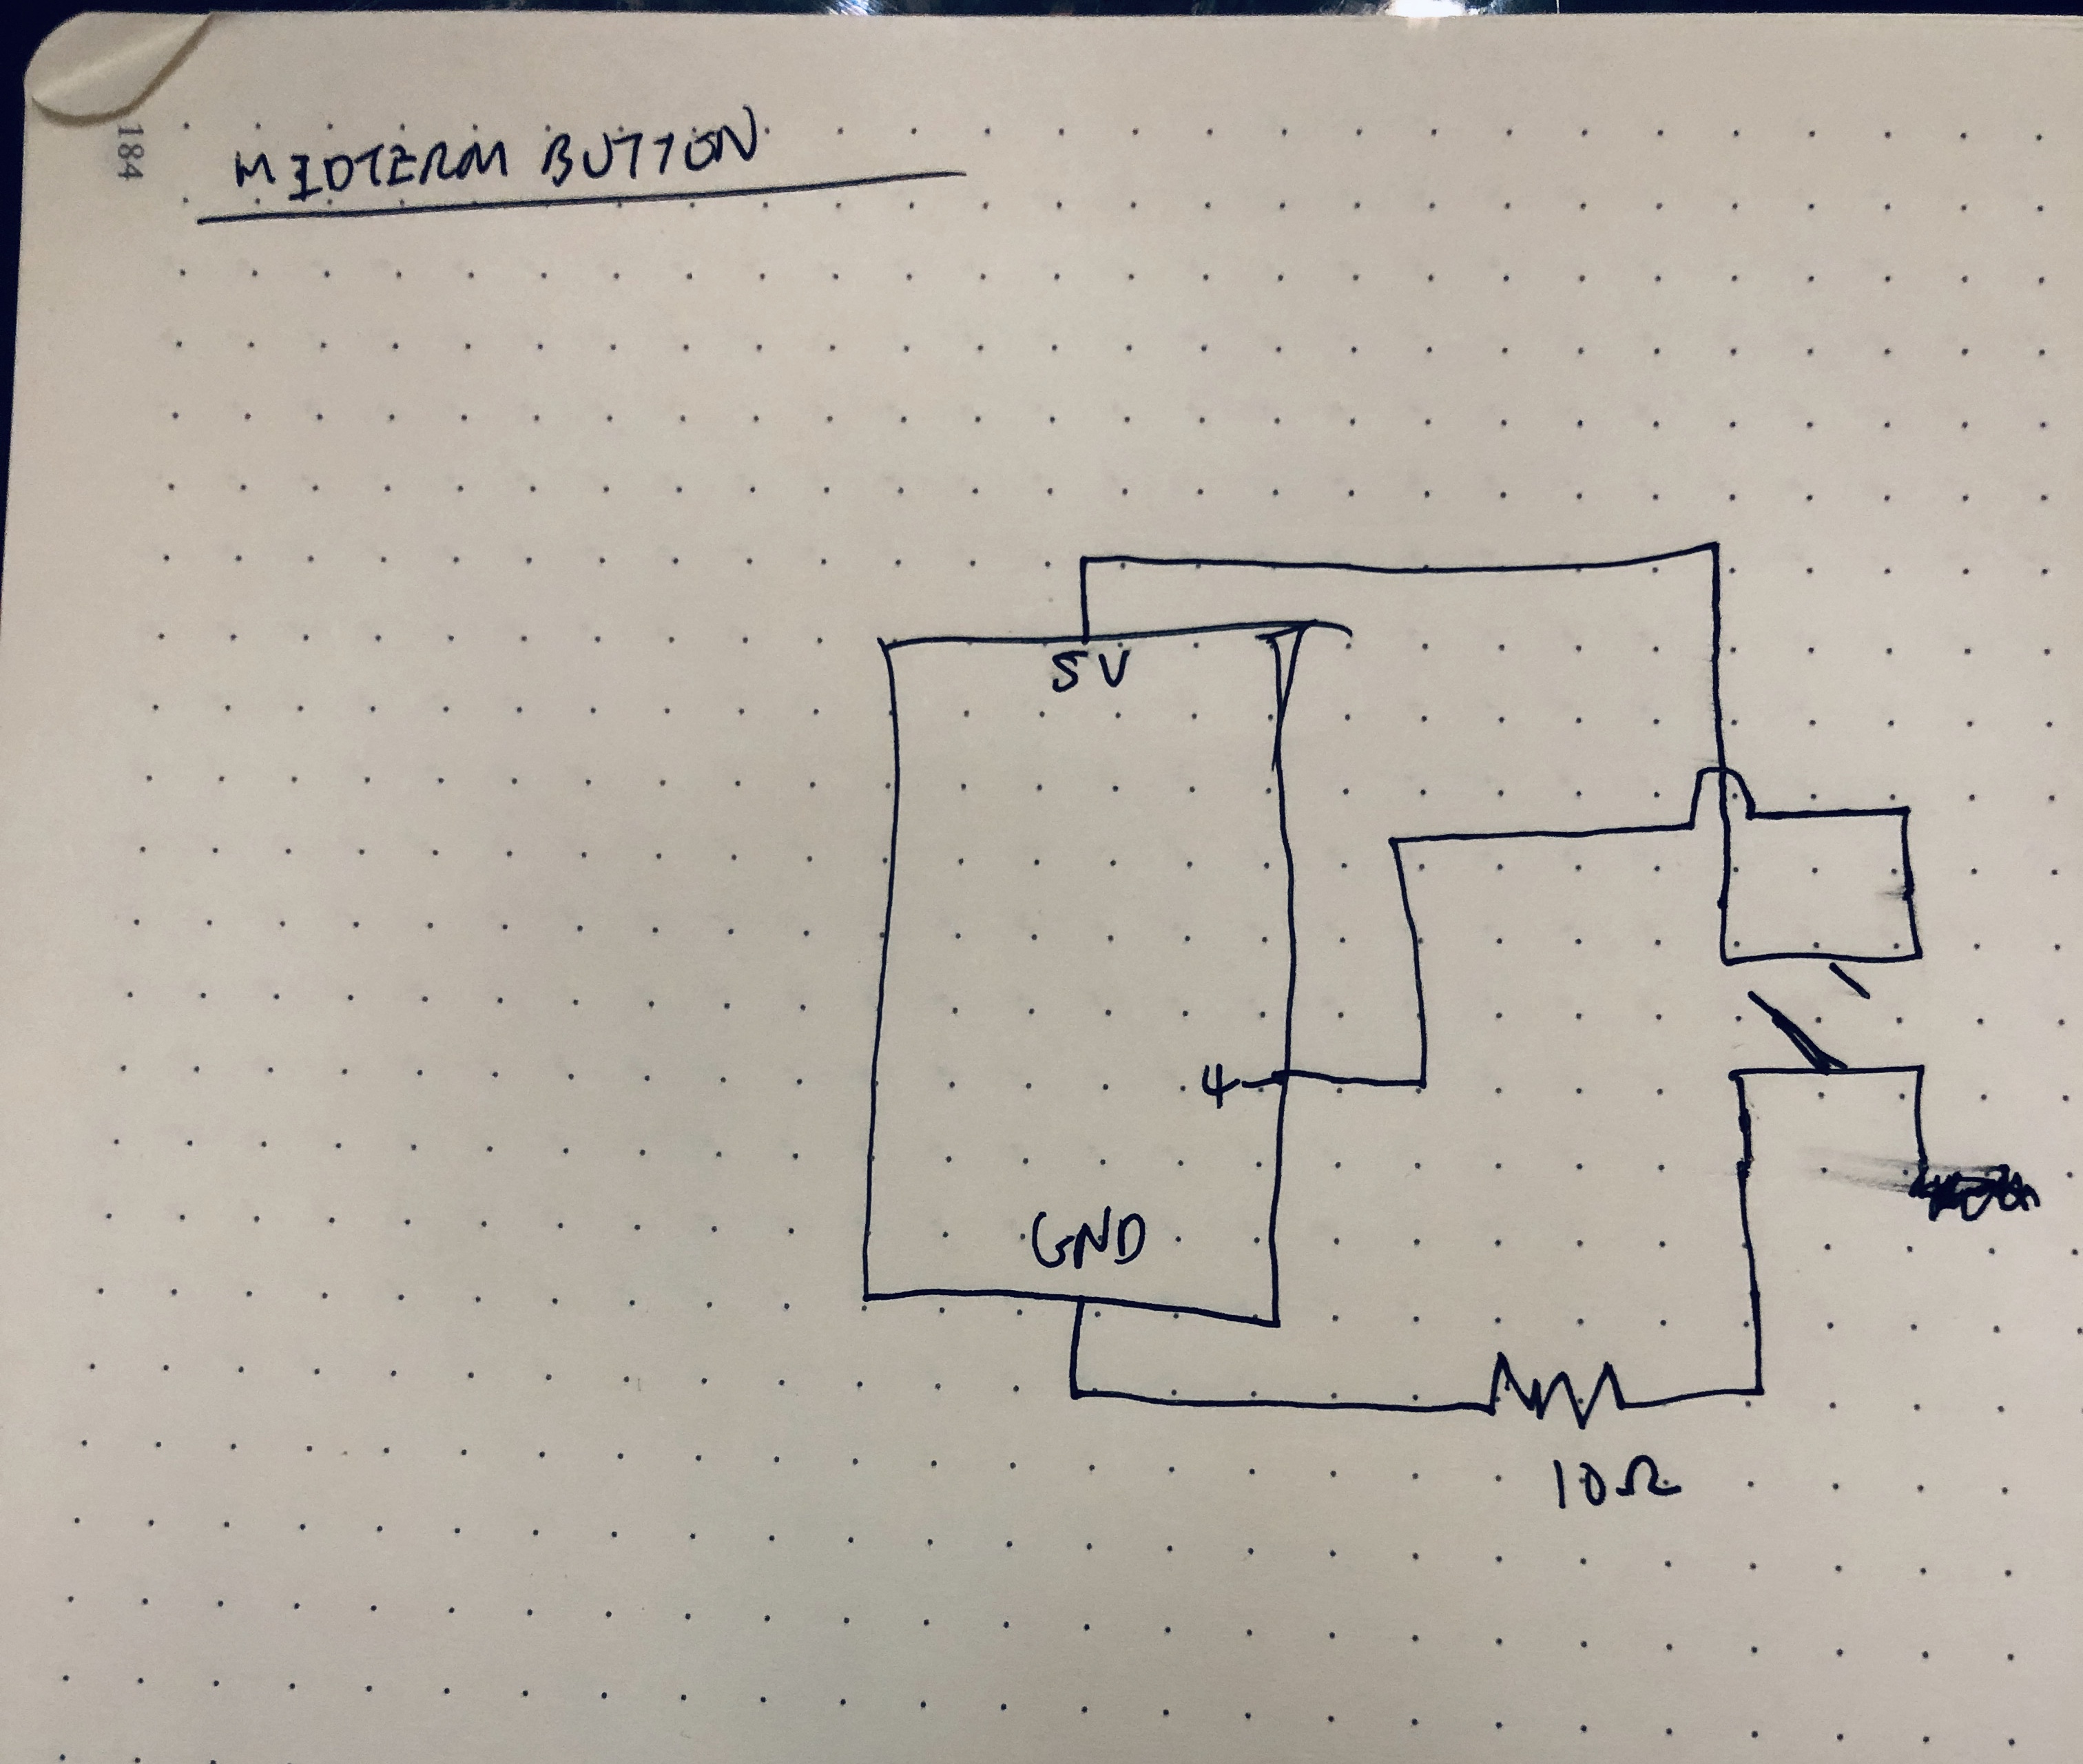 184
MIDTERM BUTTON
5V
4
GND
10Ω